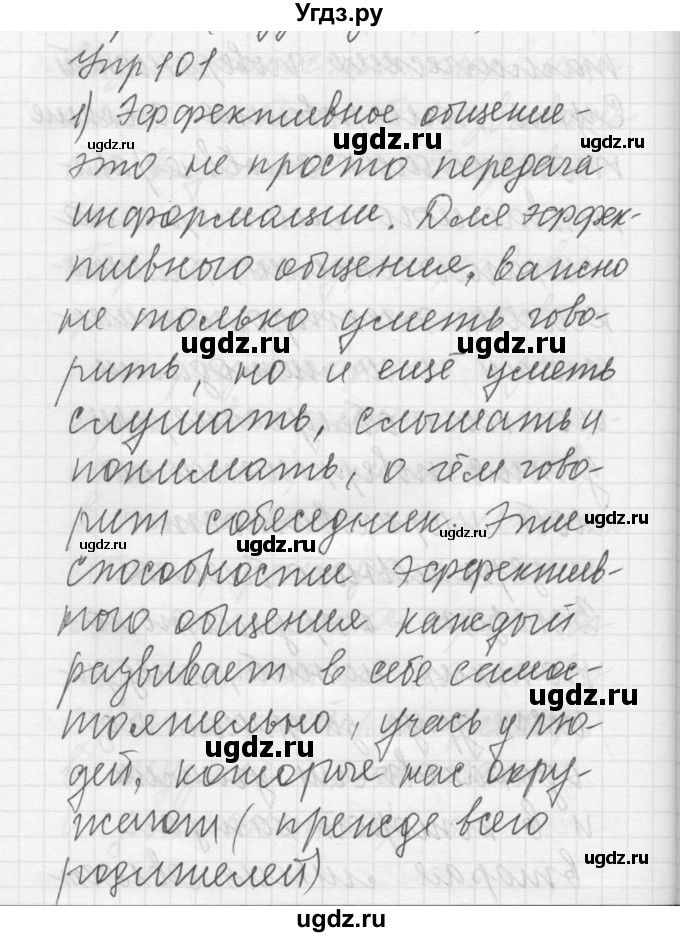 Угдз.ру
Упр 101
1) Эффективное общение -
это не просто передача
информации. Для эффек-
тивного общения, важно
не только уметь гово-
рить, но и ещё уметь
слушать, слышать и
понимать, о чём гово-
рит собеседник. Эти
способности эффектив-
ного общения каждый
развивает в себе самос-
тоятельно, учась у лю-
дей, которые нас окру-
жают (прежде всего
родителей)
ugdz.ru
ugdz.ru
ugdz.ru
ugdz.ru
ugdz.ru
ugdz.ru
ugdz.ru
ugdz.ru
ugdz.ru
ugdz.ru
ugdz.ru
ugdz.ru
ugdz.ru